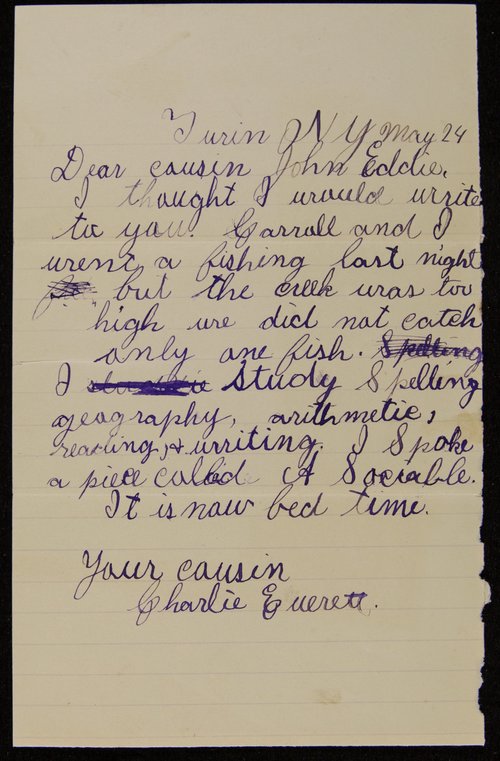 Turin N Y May 24
Dear cousin John Eddie,
I thought I would write
to you. Carroll and I
went a fishing last night
but the creek was too
high we did not catch
only one fish. Spelling
I Study Spelling
geography, arithmetic,
reading, & writing. I Spoke
a piece called A Sociable.
It is now bed time.
Your cousin
Charlie Everett.